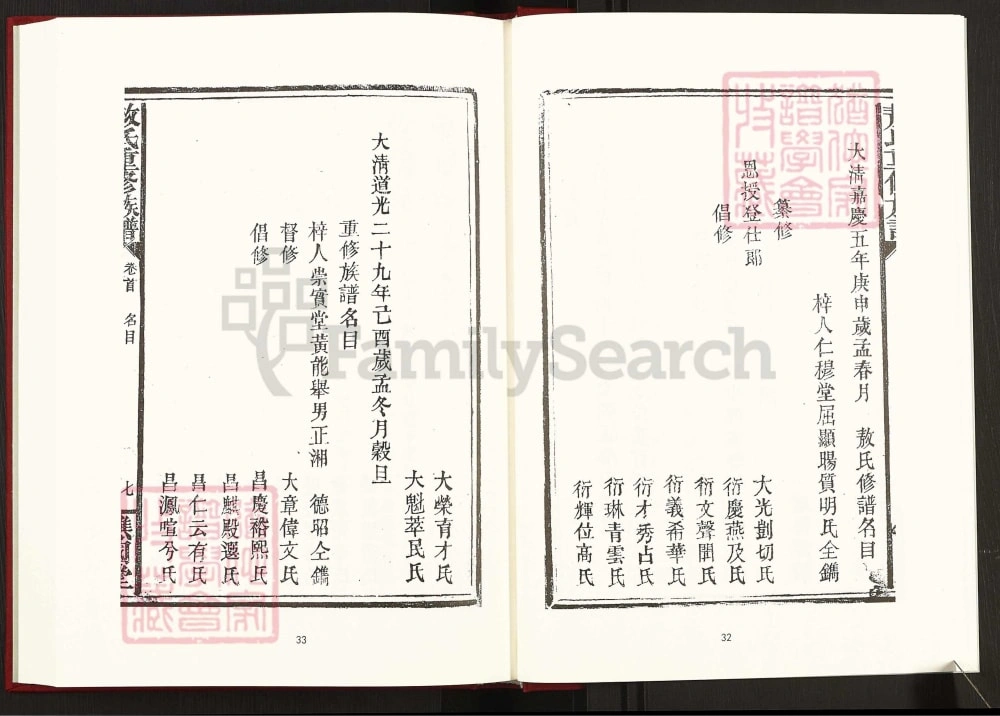 大清嘉慶五年庚申歲孟春月　敖氏修譜名目
梓人仁穆堂屈顯暘質明氏仝鐫
纂修　大光剴切氏
恩授登仕郎　衍慶燕及氏
倡修　衍文聲聞氏
衍義希華氏
衍才秀占氏
衍琳青雲氏
衍輝位高氏
32
大榮育才氏
大魁萃民氏
大清道光二十九年己酉歲孟冬月穀旦
重修族譜名目
梓人崇實堂黃能舉男正湘　德昭仝鐫
督修　大章偉文氏
倡修　昌慶裕熙氏
昌麒殿選氏
昌仁云有氏
昌鳳喧兮氏
敖氏重修族譜　卷首　名目　七
33
FamilySearch